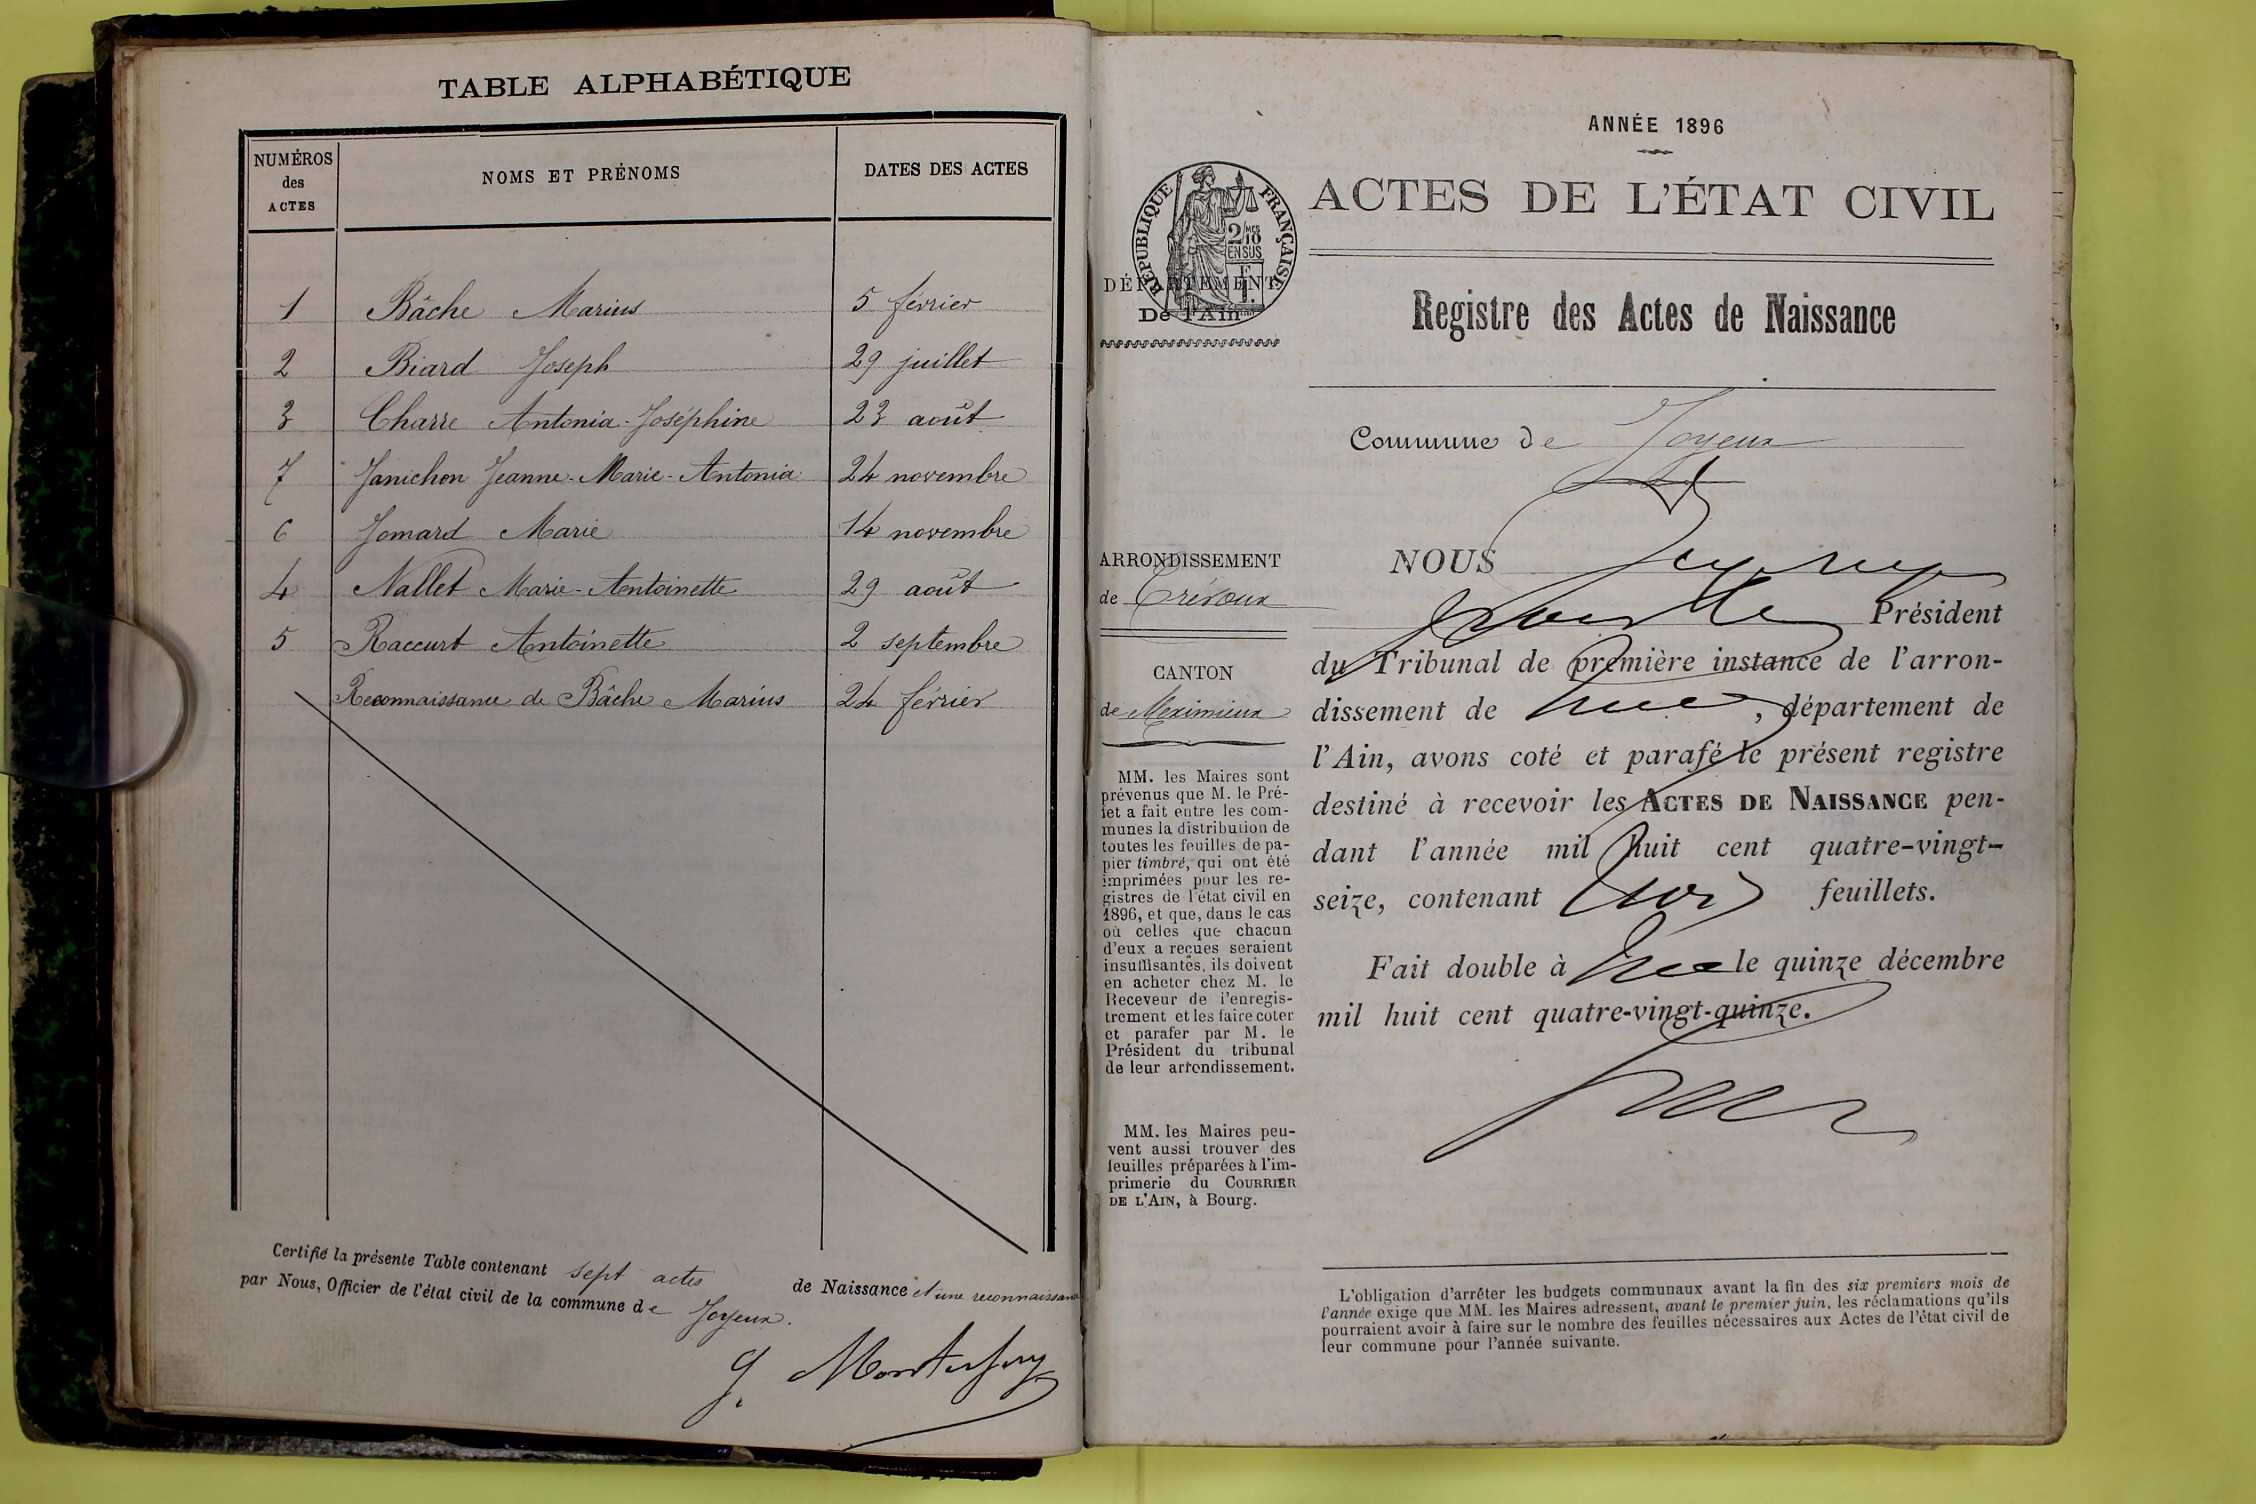 TABLE ALPHABÉTIQUE
NUMÉROS
des
ACTES
NOMS ET PRÉNOMS
DATES DES ACTES
1 Bâche Marius 5 février
2 Biard Joseph 29 juillet
3 Charre Antonia-Joséphine 23 août
7 Janichon Jeanne-Marie-Antonia 24 novembre
6 Jomard Marie 14 novembre
4 Nallet Marie-Antoinette 29 août
5 Raccurt Antoinette 2 septembre
Reconnaissance de Bâche Marius 24 février
Certifié la présente Table contenant sept actes de Naissance et une reconnaissance
par Nous, Officier de l'état civil de la commune de Joyeux.
ANNÉE 1896
ACTES DE L'ÉTAT CIVIL
RÉPUBLIQUE FRANÇAISE
2/10
EN SUS
DÉPARTEMENT
De l'Ain
Registre des Actes de Naissance
Commune de Joyeux
ARRONDISSEMENT
de Trévoux
CANTON
de Meximieux
MM. les Maires sont
prévenus que M. le Pré-
fet a fait entre les com-
munes la distribution de
toutes les feuilles de pa-
pier timbré, qui ont été
imprimées pour les re-
gistres de l'état civil en
1896, et que, dans le cas
où celles que chacun
d'eux a reçues seraient
insuffisantes, ils doivent
en acheter chez M. le
Receveur de l'enregis-
trement et les faire coter
et parafer par M. le
Président du tribunal
de leur arrondissement.
MM. les Maires peu-
vent aussi trouver des
feuilles préparées à l'im-
primerie du COURRIER
DE L'AIN, à Bourg.
NOUS
Président
du Tribunal de première instance de l'arron-
dissement de , département de
l'Ain, avons coté et parafé le présent registre
destiné à recevoir les ACTES DE NAISSANCE pen-
dant l'année mil huit cent quatre-vingt-
seize, contenant trois feuillets.
Fait double à le quinze décembre
mil huit cent quatre-vingt-quinze.
L'obligation d'arrêter les budgets communaux avant la fin des six premiers mois de
l'année exige que MM. les Maires adressent, avant le premier juin, les réclamations qu'ils
pourraient avoir à faire sur le nombre des feuilles nécessaires aux Actes de l'état civil de
leur commune pour l'année suivante.